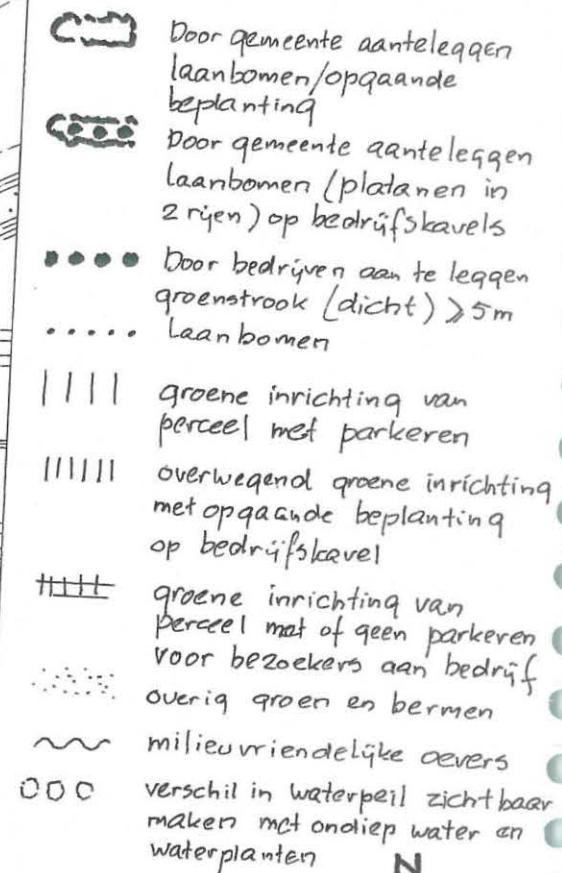 Door gemeente aanteleggen
laanbomen/opgaande
beplanting
Door gemeente aanteleggen
laanbomen (platanen in
2 rijen) op bedrijfskavels
Door bedrijven aan te leggen
groenstrook (dicht) ⩾ 5m
laanbomen
groene inrichting van
perceel met parkeren
overwegend groene inrichting
met opgaande beplanting
op bedrijfskavel
groene inrichting van
perceel met of geen parkeren
voor bezoekers aan bedrijf
overig groen en bermen
milieuvriendelijke oevers
verschil in waterpeil zichtbaar
maken met ondiep water en
waterplanten
N